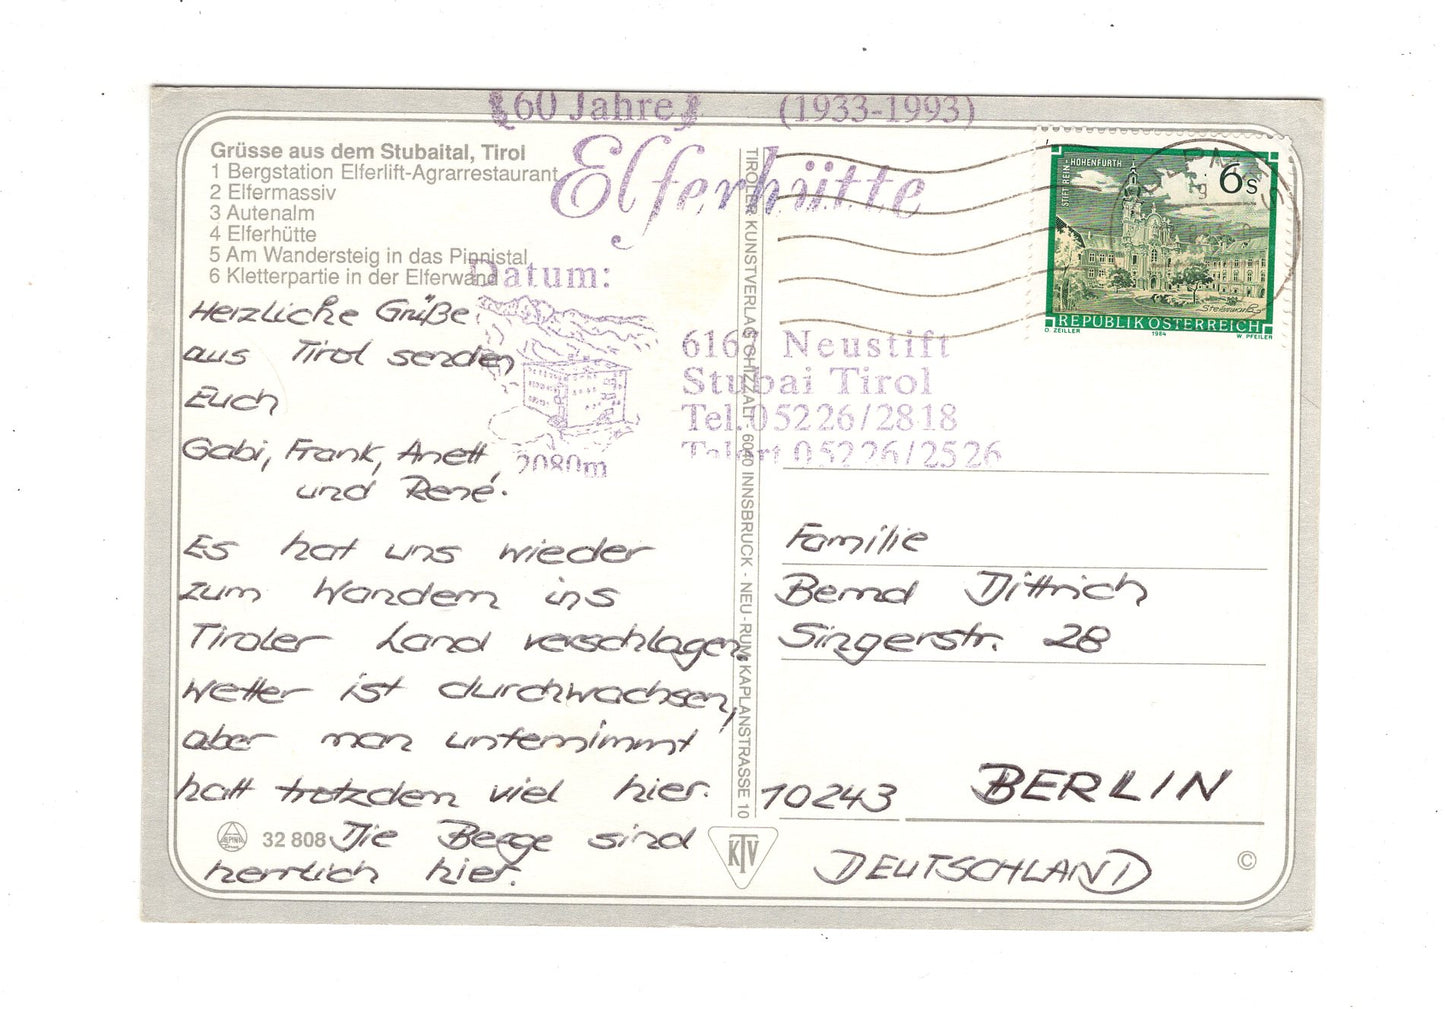 60 Jahre (1933-1993)
Elferhütte
Datum:
2080m
6167 Neustift
Stubai Tirol
Tel.05226/2818
05226/2526
Grüsse aus dem Stubaital, Tirol
1 Bergstation Elferlift-Agrarrestaurant
2 Elfermassiv
3 Autenalm
4 Elferhütte
5 Am Wandersteig in das Pinnistal
6 Kletterpartie in der Elferwand
Herzliche Grüße
aus Tirol senden
Euch
Gabi, Frank, Anett,
und René.
Es hat uns wieder
zum Wandern ins
Tiroler Land verschlagen.
Wetter ist durchwachsen,
aber man unternimmt
halt trotzdem viel hier.
Die Berge sind
herrlich hier.
32 808
TIROLER KUNSTVERLAG CHIZZALI - 6040 INNSBRUCK - NEU-RUM, KAPLANSTRASSE 10
KTV
STIFT REIN-HOHENFURTH
6s
Steiermark
REPUBLIK ÖSTERREICH
D. ZEILLER 1984 W. PFEILER
Familie
Bernd Dittrich
Singerstr. 28
10243 BERLIN
DEUTSCHLAND
©